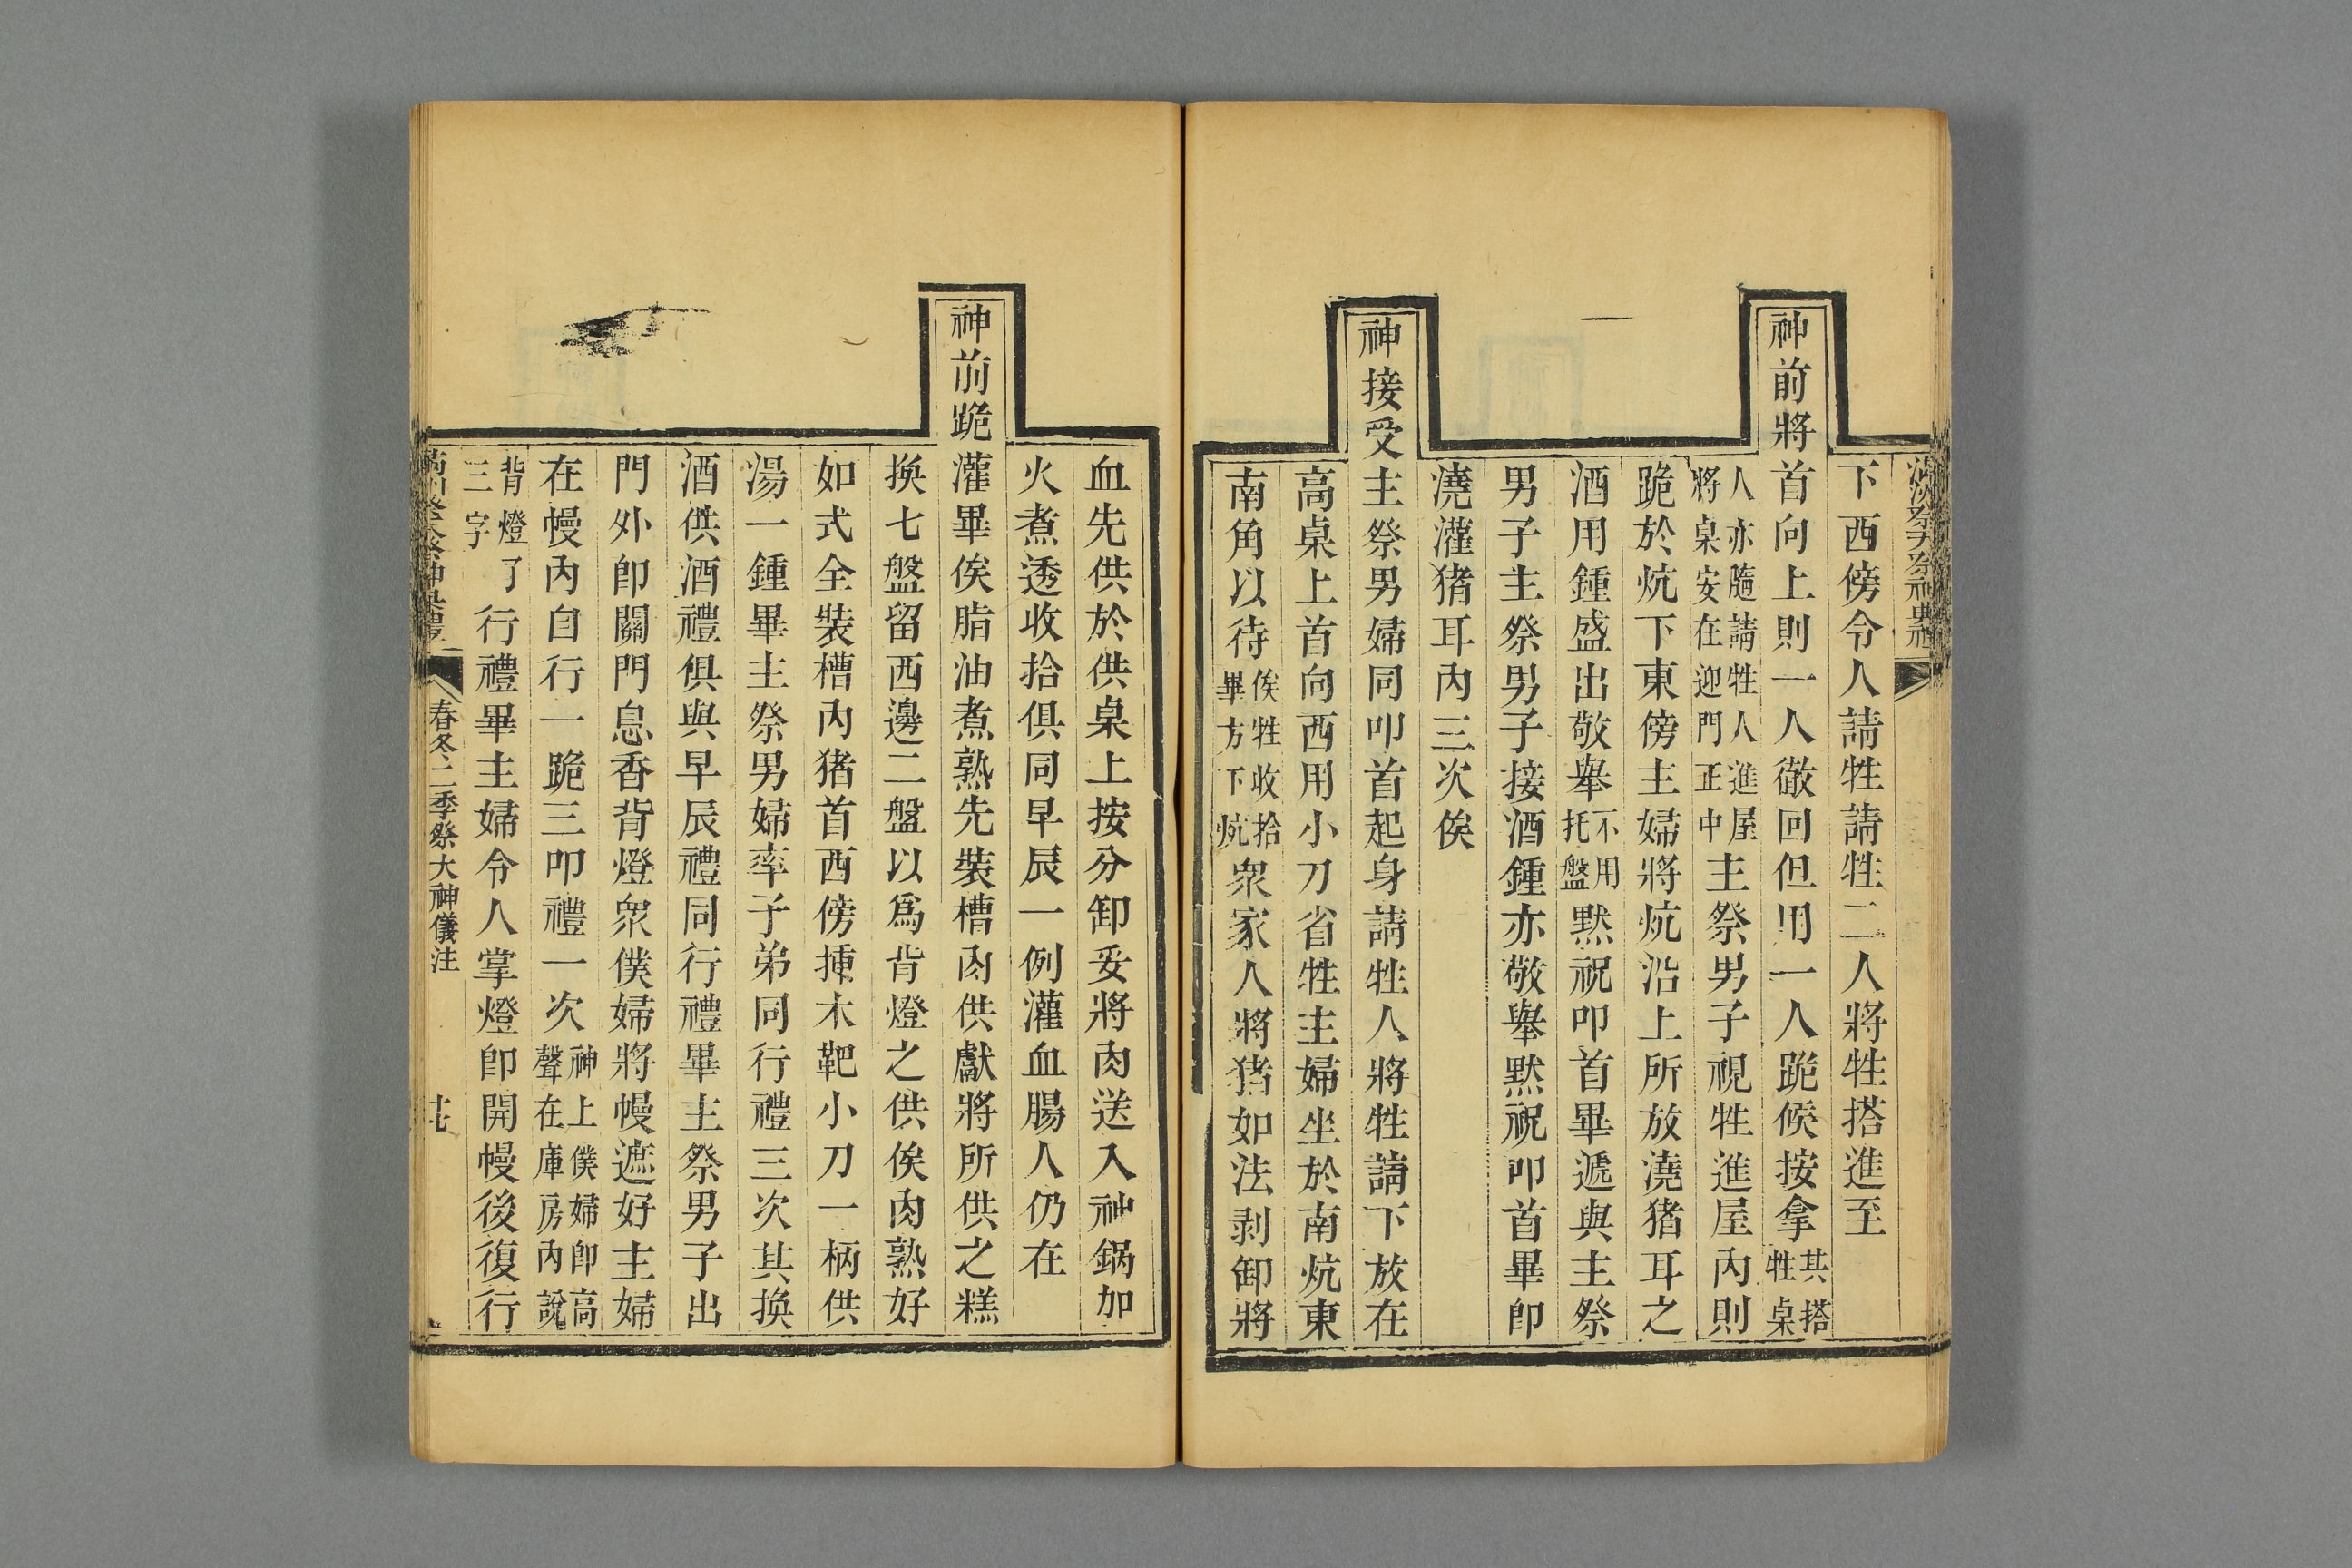 滿洲祭天祭神典禮
下西傍令人請牲請牲二人將牲搭進至
神前將首向上則一人徹回但用一人跪候按拿其搭牲桌
人亦隨請牲人進屋將桌安在迎門正中主祭男子視牲進屋內則
跪於炕下東傍主婦將炕沿上所放澆猪耳之
酒用鍾盛出敬舉不用托盤默祝叩首畢遞與主祭
男子主祭男子接酒鍾亦敬舉默祝叩首畢即
澆灌猪耳內三次俟
神接受主祭男婦同叩首起身請牲人將牲請下放在
高桌上首向西用小刀省牲主婦坐於南炕東
南角以待俟牲收拾畢方下炕衆家人將猪如法剥卸將
血先供於供桌上按分卸妥將肉送入神鍋加
火煮透收拾俱同早辰一例灌血腸人仍在
神前跪灌畢俟脂油煮熟先裝槽肉供獻將所供之糕
換七盤留西邊二盤以爲背燈之供俟肉熟好
如式全裝槽內猪首西傍揷木靶小刀一柄供
湯一鍾畢主祭男婦率子弟同行禮三次其換
酒供酒禮俱與早辰禮同行禮畢主祭男子出
門外卽關門息香背燈衆僕婦將幔遮好主婦
在幔內自行一跪三叩禮一次神上僕婦卽高聲在庫房內說
背燈了三字行禮畢主婦令人掌燈卽開幔後復行
滿洲祭天祭神典禮 春冬二季祭大神儀注 十七